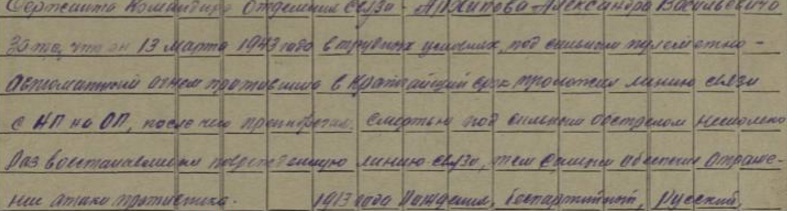 Сержанта Командира Отделения связи - Архипова Александра Васильевича
За то, что он 13 марта 1943 года в трудных условиях, под сильным пулеметно-
автоматным огнем противника в кратчайший срок проложил линию связи
с НП на ОП, после чего смертью под сильным обстрелом несколько
раз восстанавливал поврежденную линию связи, тем самым отраже-
ние атаки противника. 1913 года рождения, беспартийный, русский,